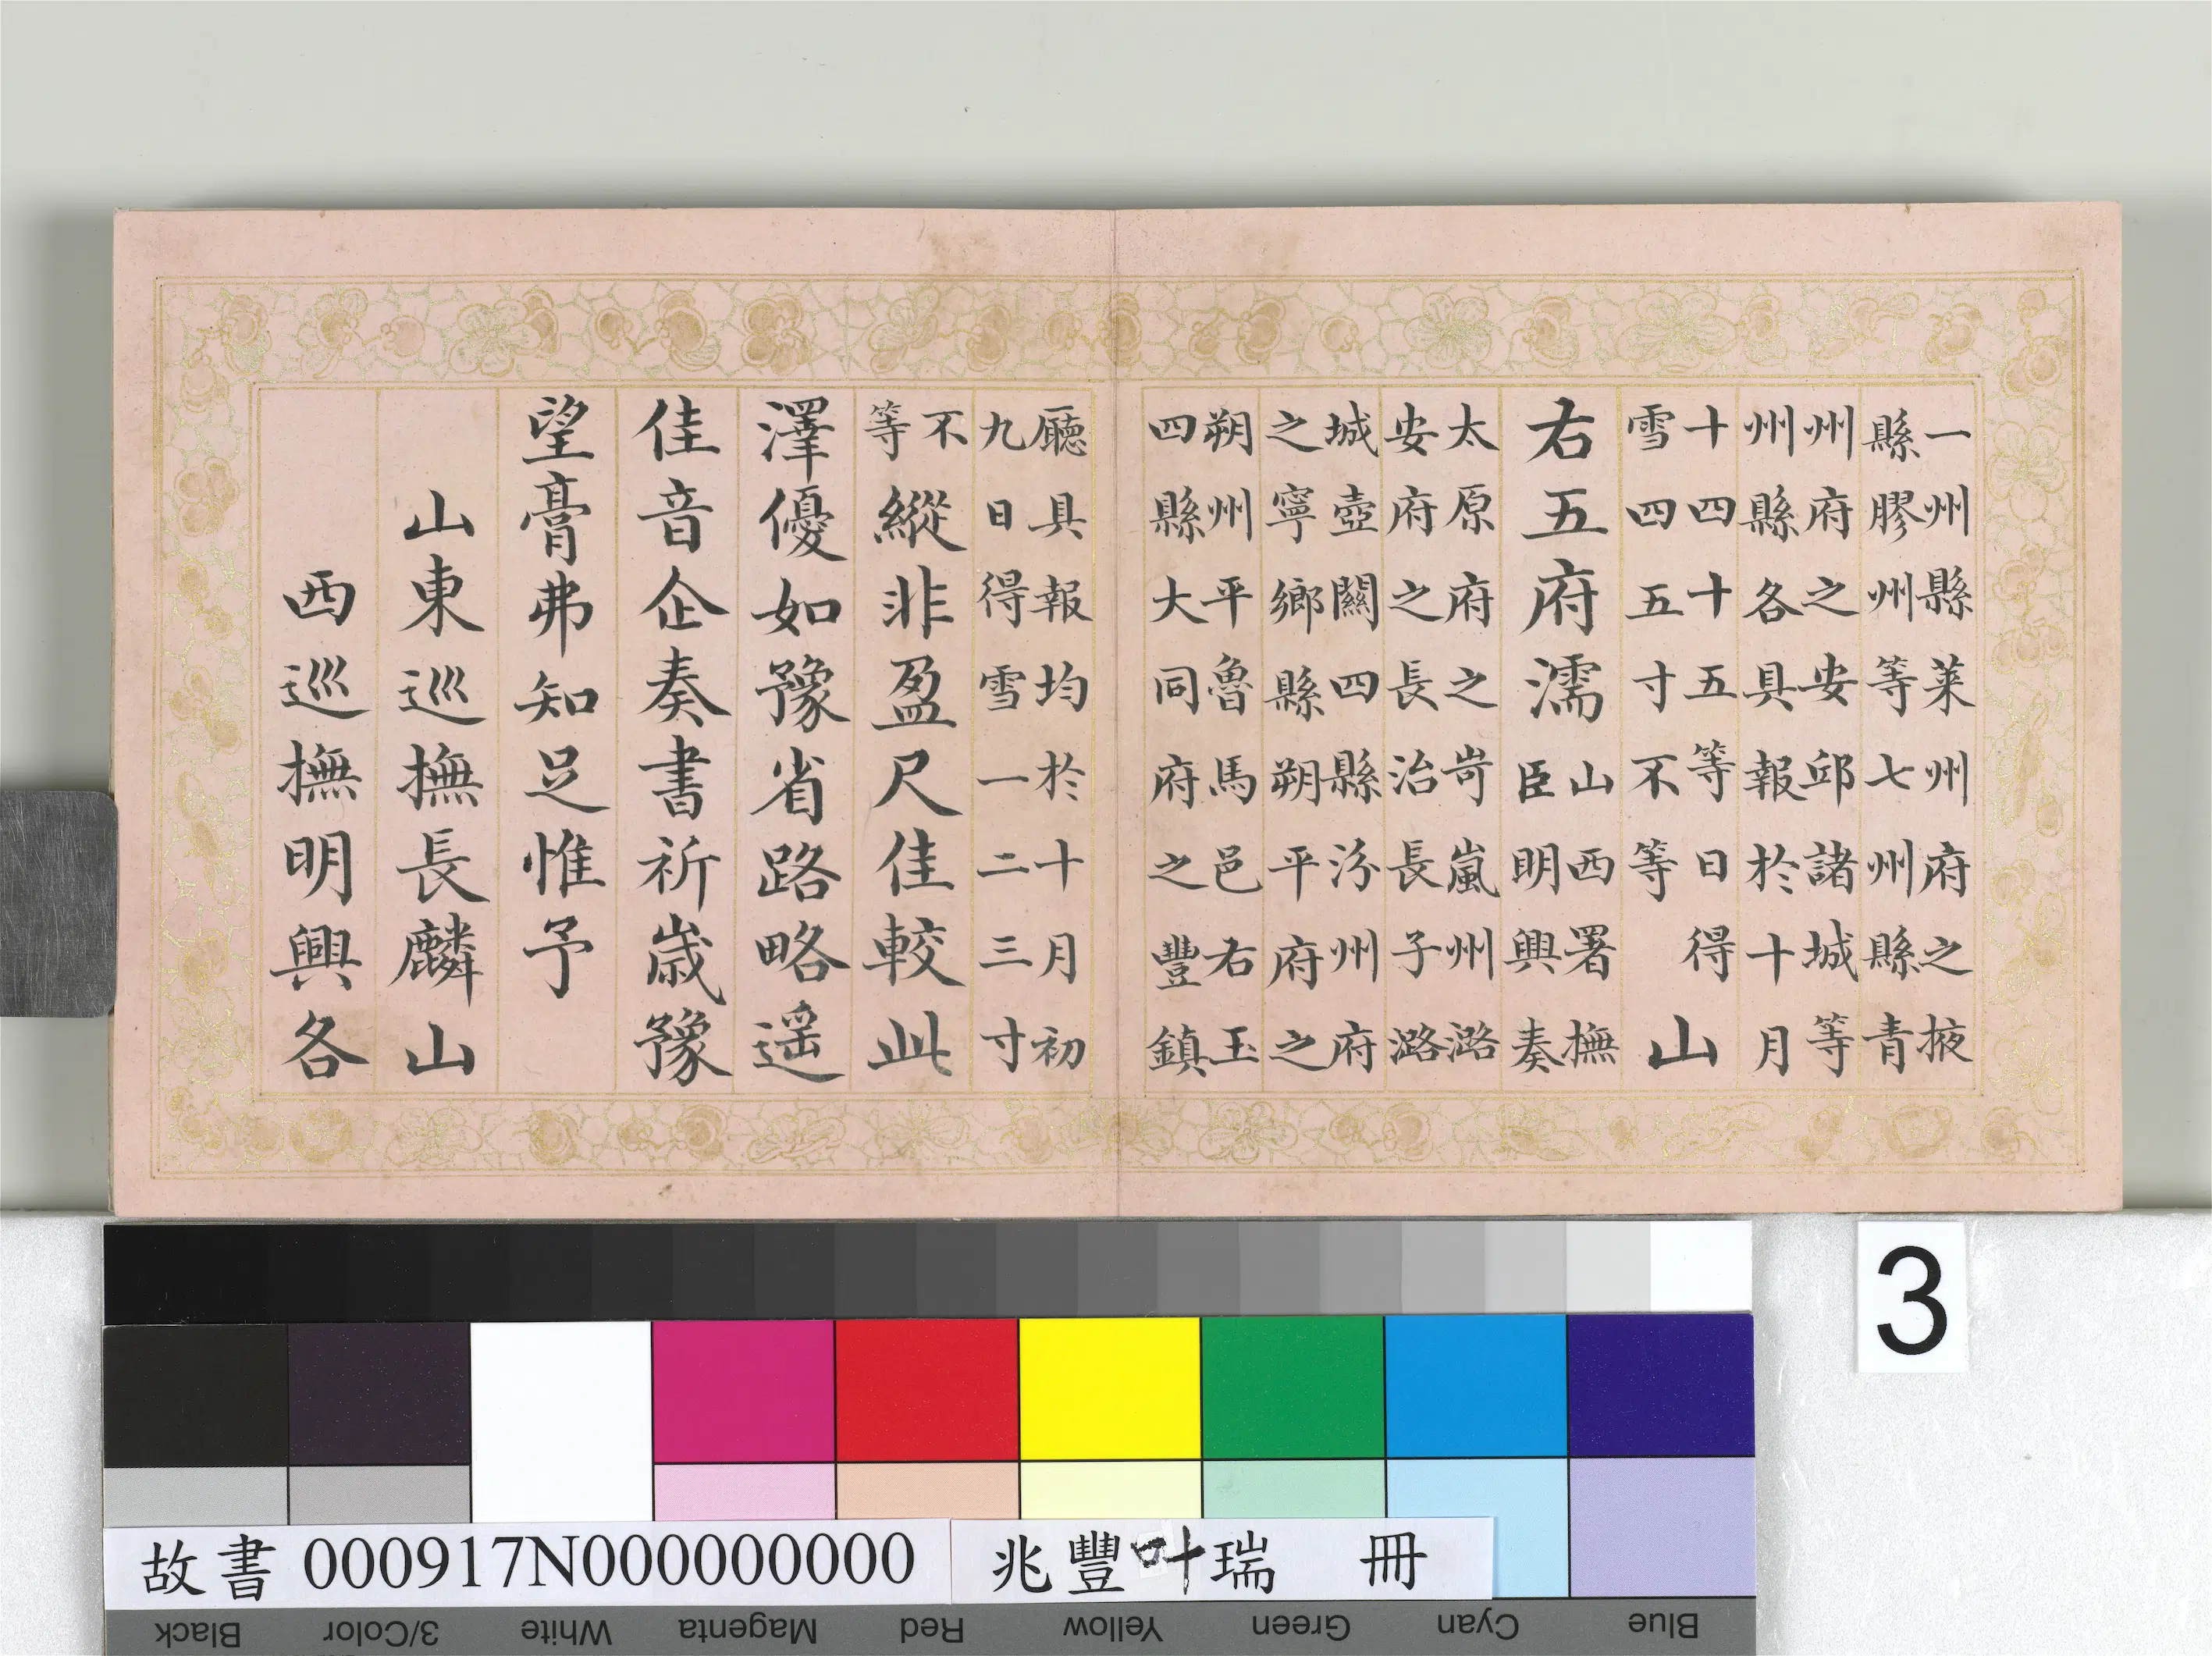 一州縣萊州府之掖
縣膠州等七州縣青
州府之安邱諸城等
州縣各具報於十月
十四十五等日得
雪四五寸不等
山
右五府濡
山西署撫
臣明興奏
太原府之岢嵐州潞
安府之長治長子潞
城壺關四縣汾州府
之寧鄉縣朔平府之
朔州平魯馬邑右玉
四縣大同府之豐鎮
廳具報均於十月初
九日得雪一二三寸
不
等
縱非盈尺佳較此
澤優如豫省路略遥
佳音企奏書祈歳豫
望膏弗知足惟予
山東巡撫長麟山
西巡撫明興各
3
故書 000917N000000000 兆豐叶瑞 冊
Black 3/Color White Magenta Red Yellow Green Cyan Blue